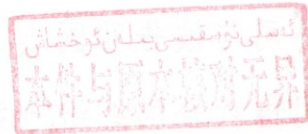 ئەسلى نۇسقىسى بىلەن ئوخشاش
本件与原本核对无异